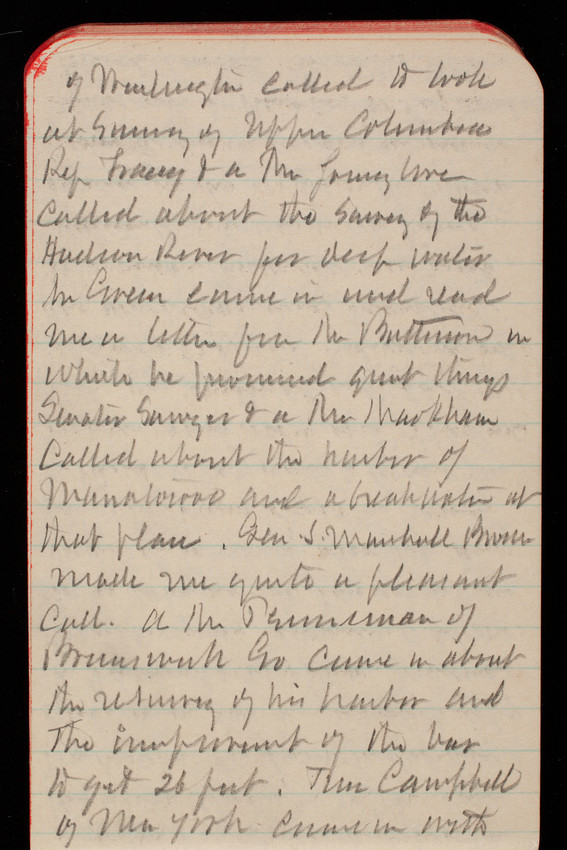 of Washington called to look
at Survey of Upper Columbia
Rep Tracey & a Mr
called about the Survey of the
Hudson River for deep water
Mr Green came in and read
me a letter from Mr Butterworth in
which he promised great things
Senator Sawyer & a Mr Markham
called about the harbor of
Manatowoc and a breakwater at
that place. Gen J. Marshall Brown
made me quite a pleasant
call. A Mr of
Brunswick Ga came in about
the resurvey of his harbor and
the improvement of the bar
to get 26 feet. Tim Campbell
of New York came in with